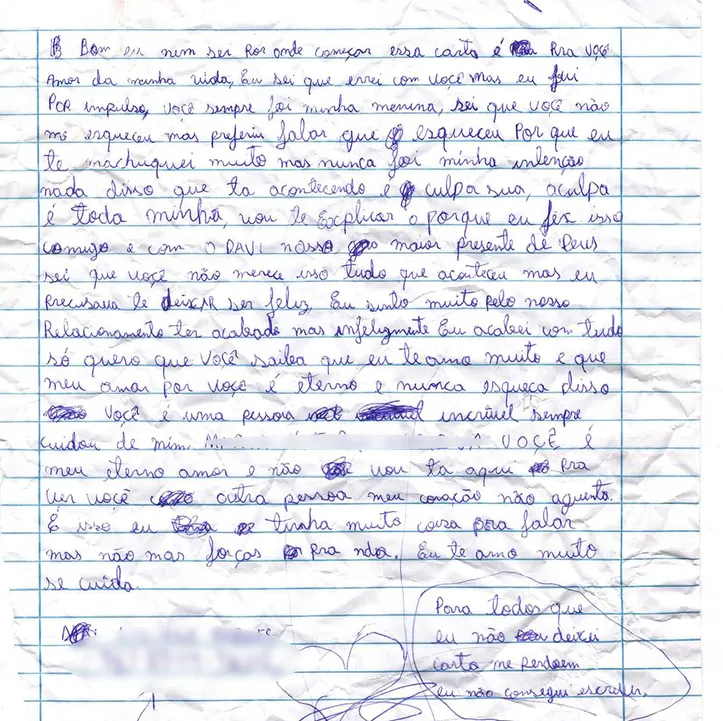 Bom eu nem sei por onde começar essa carta é pra você
Amor da minha vida, Eu sei que errei com você mas eu fui
POR impulso, você sempre foi minha menina, sei que você não
me esqueceu mas preferiu falar que esqueceu Por que eu
te machuquei muito mas nunca foi minha intenção
nada disso que ta acontecendo é culpa sua, aculpa
é toda minha, vou te Explicar o porque eu fiz isso
comigo e com o DAVI nosso maior presente de Deus
sei que você não merece isso tudo que aconteceu mas eu
precisava te deixar ser feliz, Eu sinto muito pelo nosso
Relacionamento ter acabado mas infelizmente Eu acabei com tudo
só quero que Você saiba que eu te amo muito e que
meu amor por você é eterno e nunca esqueça disso
Você é uma pessoa incrivel sempre
cuidou de mim. VOCÊ é
meu eterno amor e não vou ta aqui Pra
ver você outra pessoa meu coração não aguenta.
É isso eu tinha muito coisa pra falar
mas não mas forças Pra nda. Eu te amo muito
se cuida.
Para todos que
eu não deixei
carta me perdoem
eu não consegui escrever.